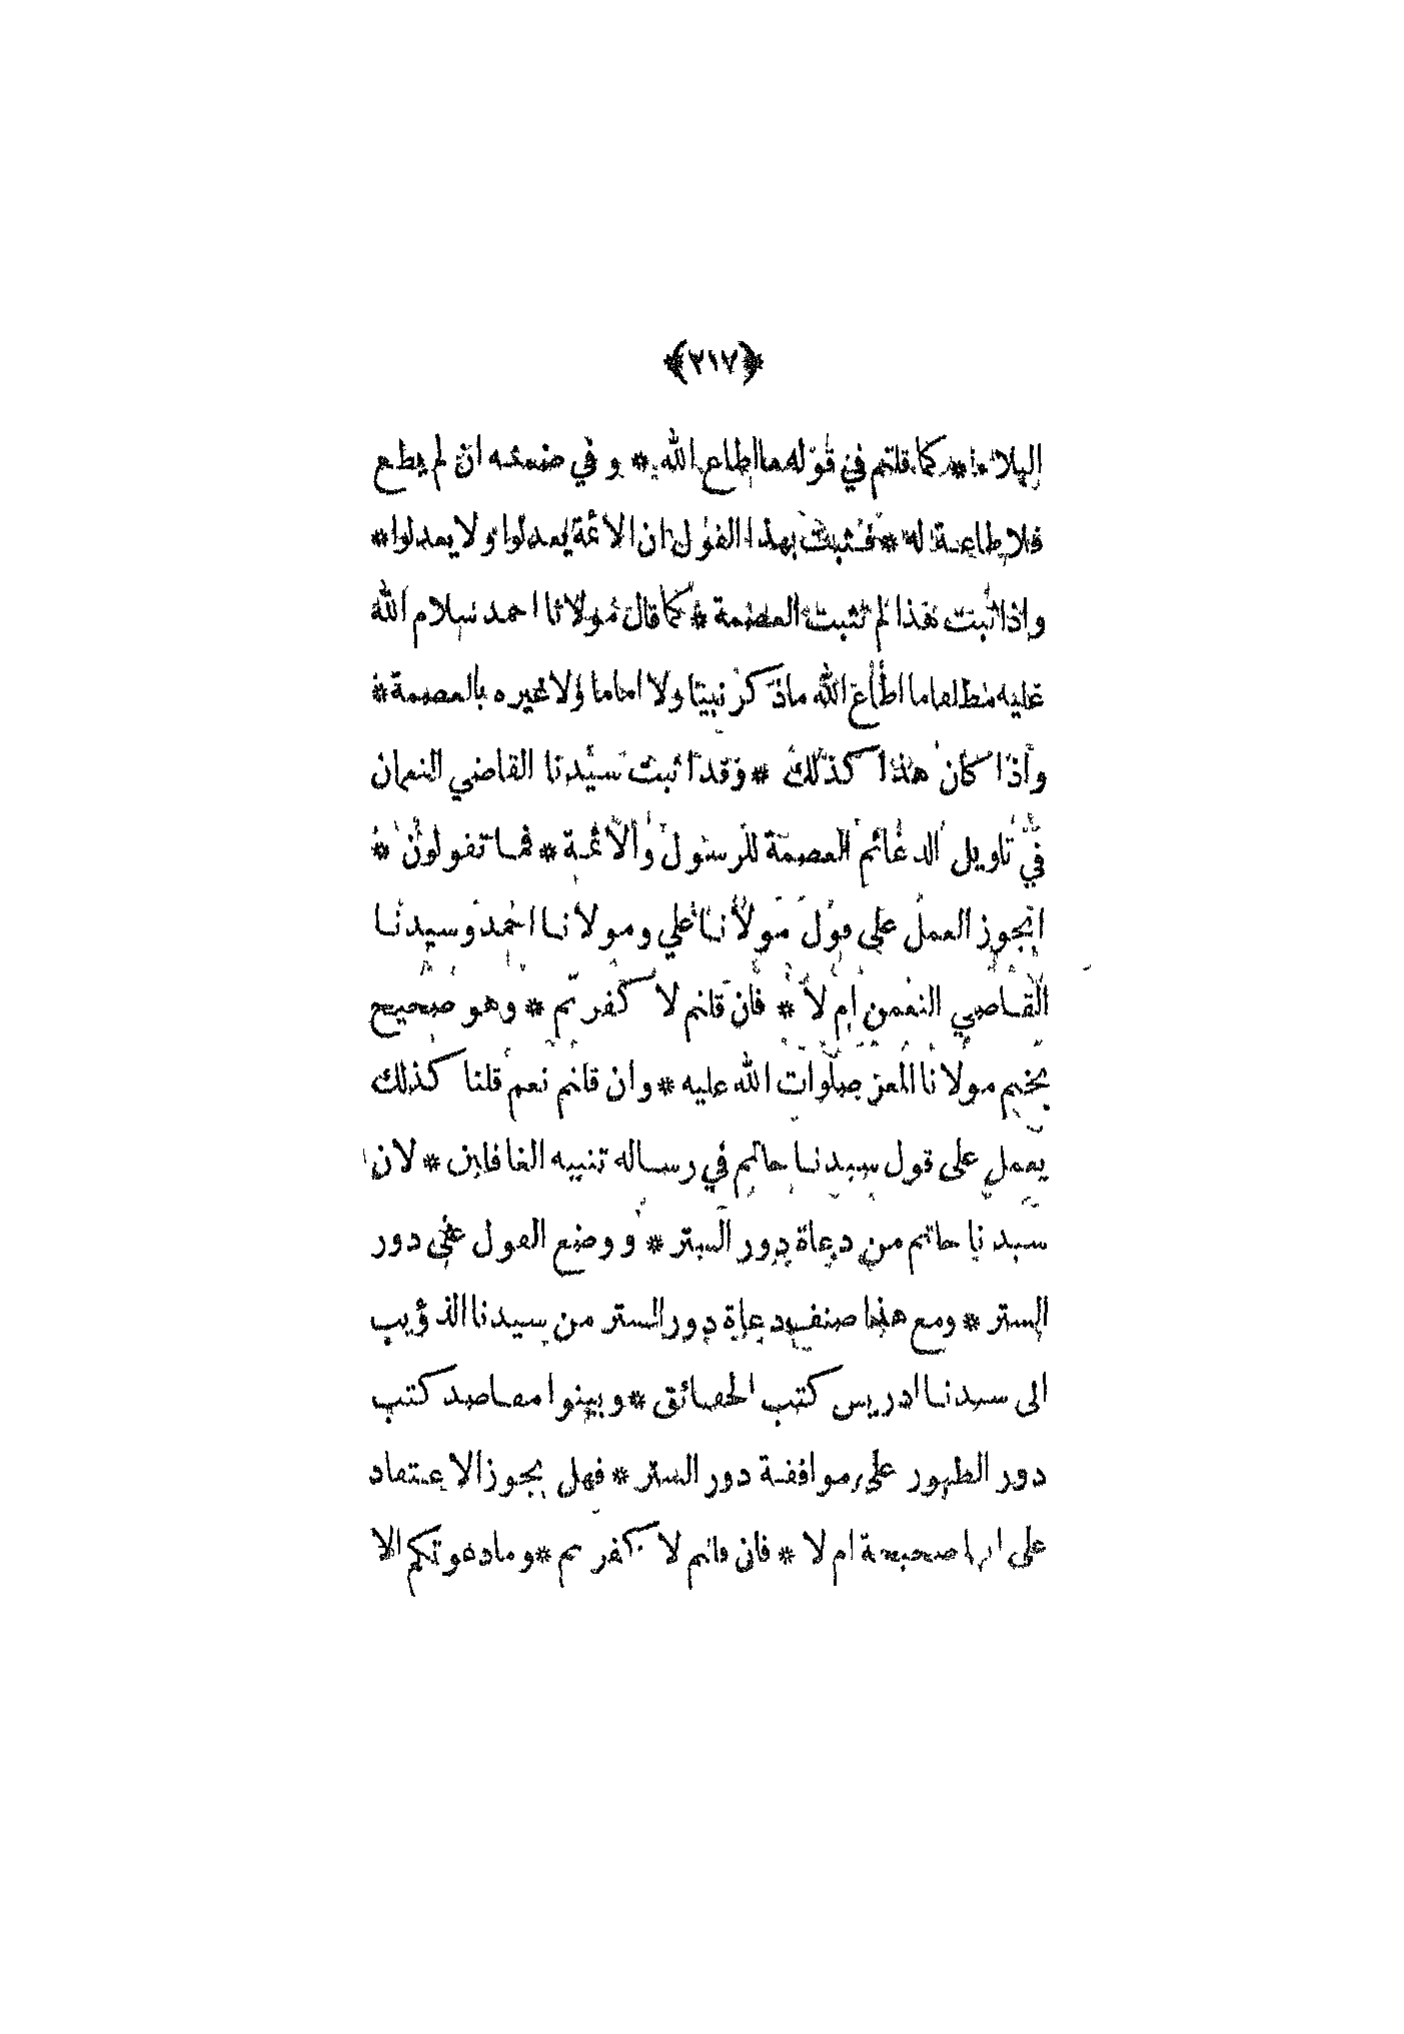 ﴿٢١٧﴾
* كما قلتم في قوله ما اطاع الله * و في ضمنه ان لم يطع
فلا طاعة له * فثبت بهذا القول ان الائمة يعدلوا ولا يعدلوا *
واذا ثبت هذا لم تثبت العصمة * كما قال مولانا احمد سلام الله
عليه مطلعا ما اطاع الله ما ذكر نبيا ولا اماما ولا غيره بالعصمة *
واذا كان هذا كذلك * وقد اثبت سيدنا القاضي النعمان
في تاويل الدعائم العصمة للرسول والائمة * فما تقولون *
ايجوز العمل على قول مولانا علي ومولانا احمد وسيدنا
القاضي النعمن ام لا * فان قلتم لا كفرتم * وهو صحيح
بختم مولانا المعز صلوات الله عليه * وان قلتم نعم قلنا كذلك
يعمل على قول سيدنا حاتم في رساله تنبيه الغافلين * لان
سيدنا حاتم من دعاة دور الستر * و وضع القول على دور
الستر * ومع هذا صنف دعاة دور الستر من سيدنا الذؤيب
الى سيدنا ادريس كتب الحقائق * وبينوا مقاصد كتب
دور الظهور على موافقة دور الستر * فهل يجوز الاعتقاد
على انها صحيحة ام لا * فان قلتم لا كفرتم * وما دعوتكم الا